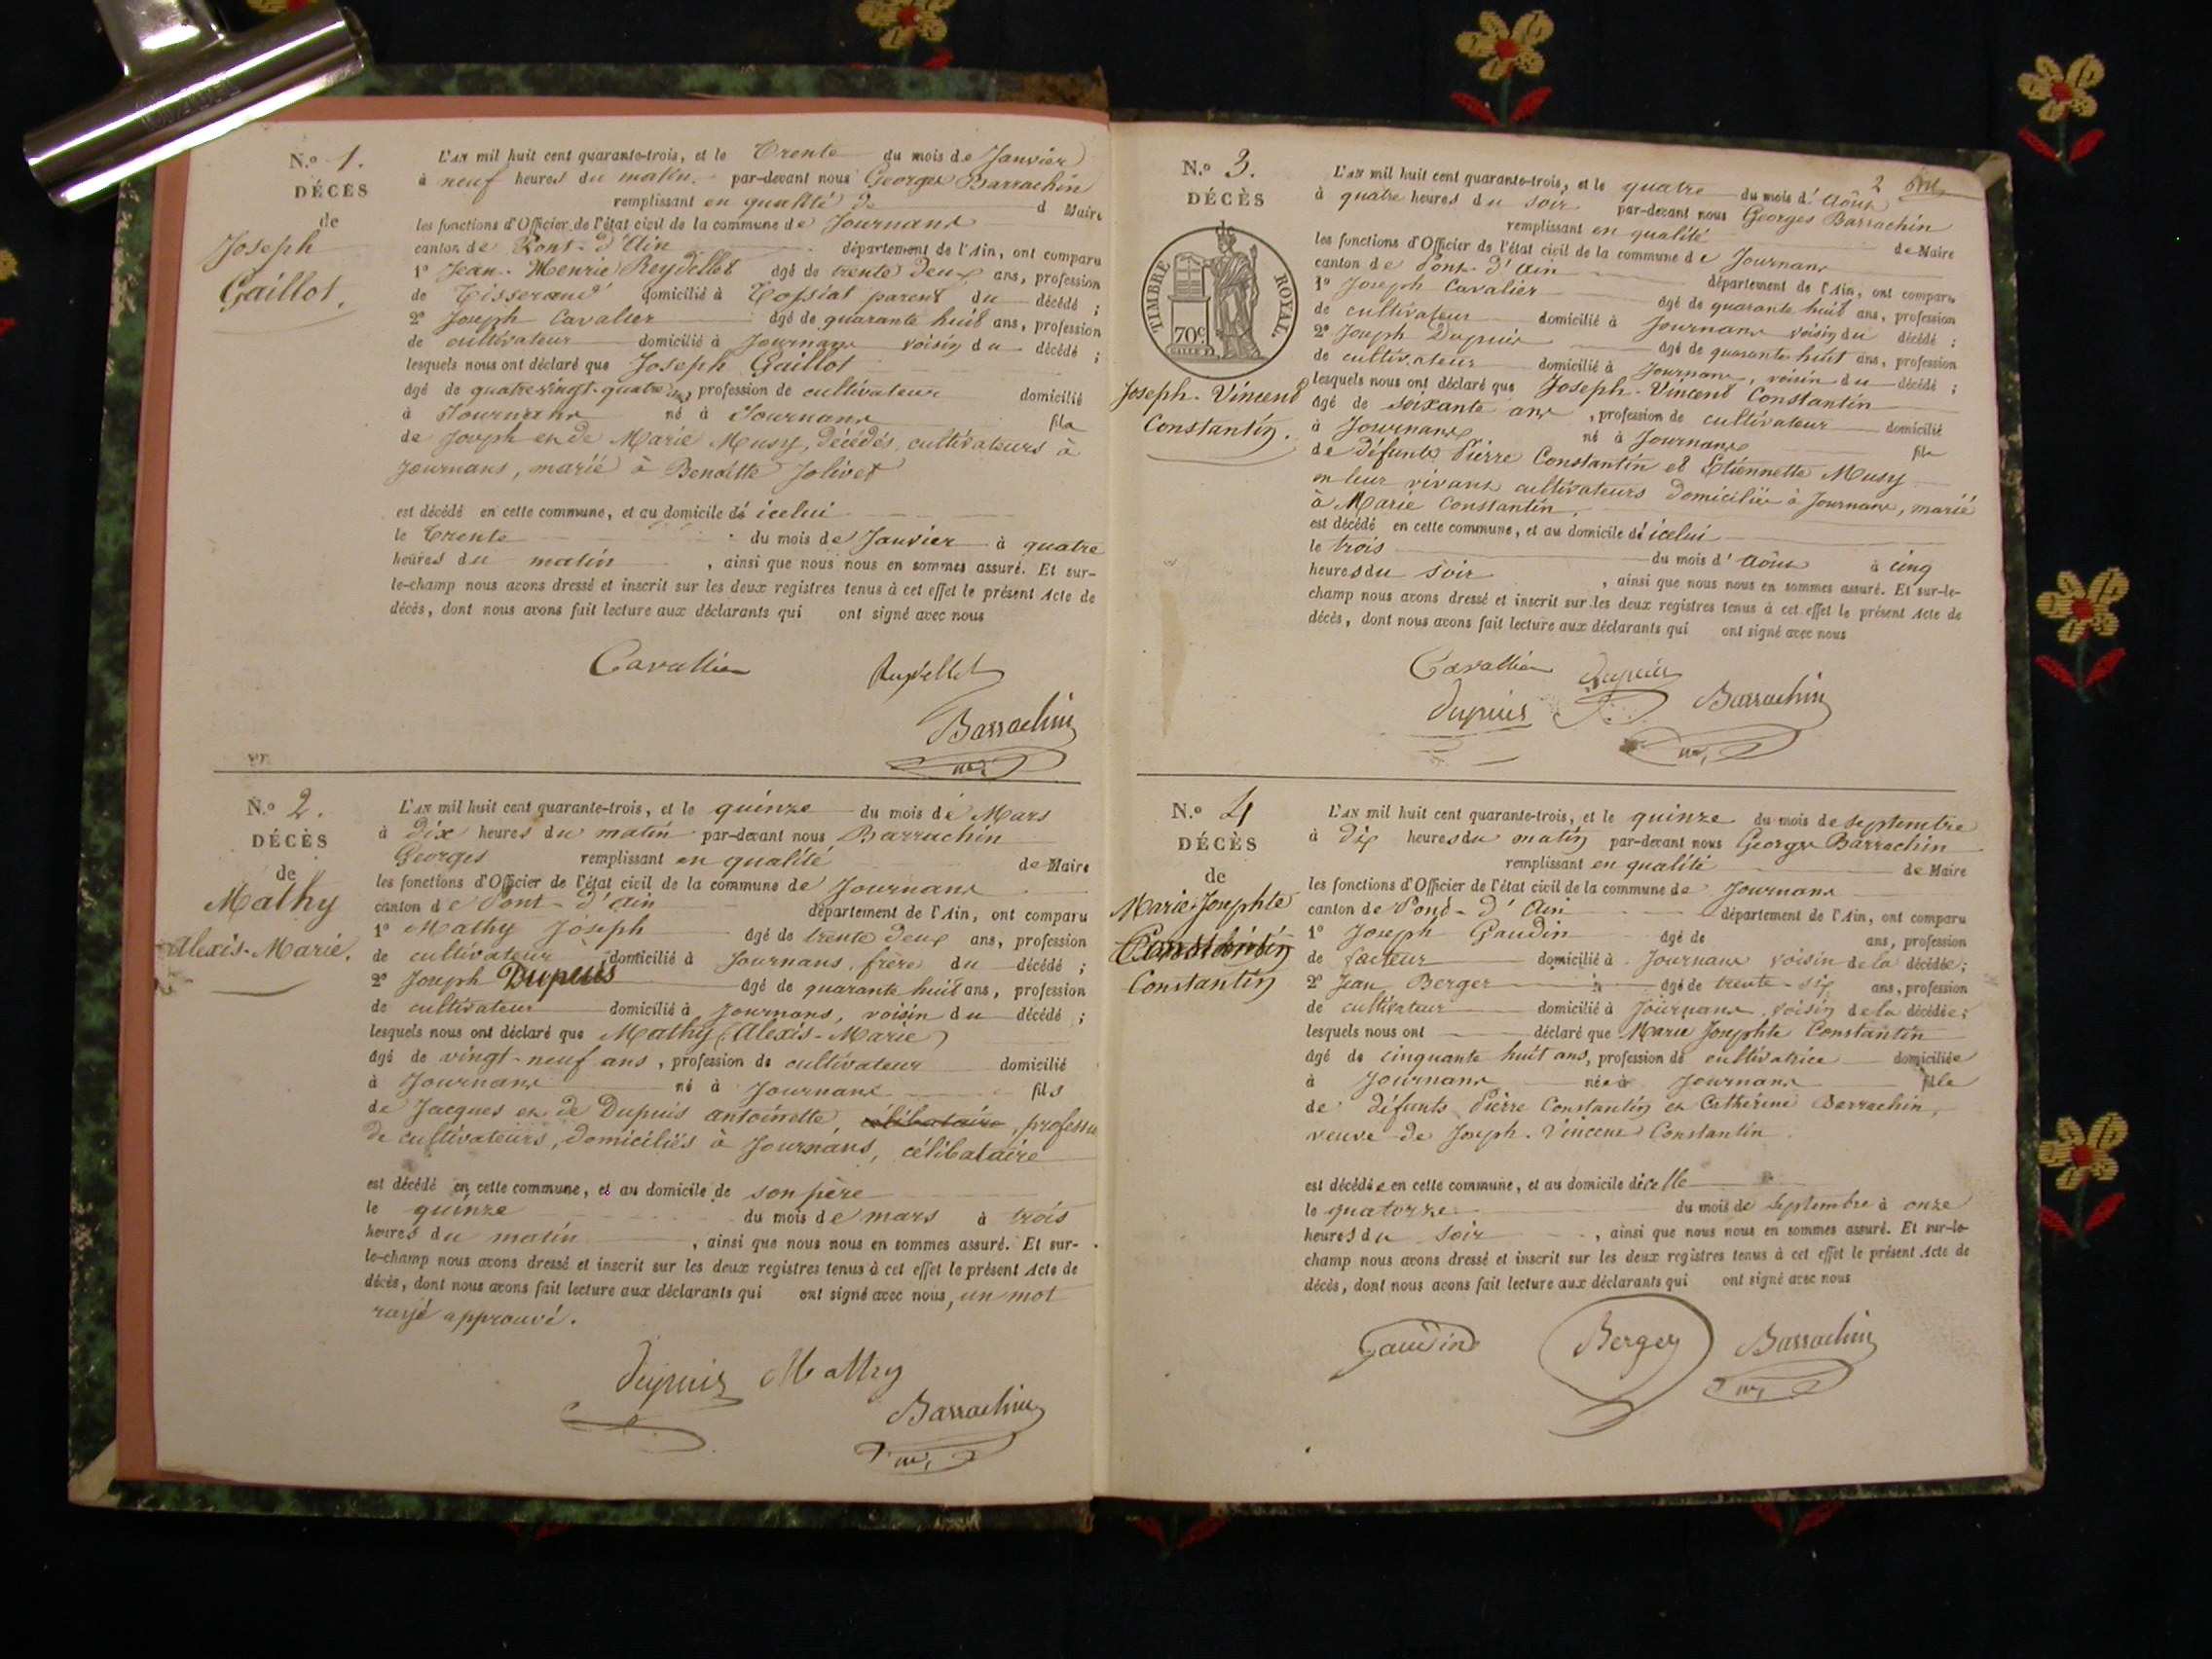 N.º 1.
DÉCÈS
de
Joseph
Gaillot.
L'AN mil huit cent quarante-trois, et le Trente du mois de Janvier
à neuf heures du matin. par-devant nous Georges Barrachin
remplissant en qualité de d Maire
les fonctions d'Officier de l'état civil de la commune de Journans
canton de Pont-d'Ain département de l'Ain, ont comparu
1º Jean-Henrie Reydellet âgé de trente deux ans, profession
de Tisserand domicilié à Tossiat parent du décédé ;
2º Joseph Cavalier âgé de quarante huit ans, profession
de cultivateur domicilié à Journans voisin du décédé ;
lesquels nous ont déclaré que Joseph Gaillot
âgé de quatrevingt-quatre ans, profession de cultivateur domicilié
à Journans né à Journans fils
de Joseph et de Marie Musy, décédés, cultivateurs à
Journans, marié à Benoitte Jolivet
est décédé en cette commune, et au domicile d'icelui
le trente du mois de Janvier à quatre
heures du matin , ainsi que nous nous en sommes assuré. Et sur-
le-champ nous avons dressé et inscrit sur les deux registres tenus à cet effet le présent Acte de
décès, dont nous avons fait lecture aux déclarants qui ont signé avec nous
Cavallier Reydellet
Barrachin
N.º 2.
DÉCÈS
de
Mathy
Alexis-Marie.
L'AN mil huit cent quarante-trois, et le quinze du mois de Mars
à dix heures du matin par-devant nous Barrachin
Georges remplissant en qualité de Maire
les fonctions d'Officier de l'état civil de la commune de Journans
canton de Pont-d'ain département de l'Ain, ont comparu
1º Mathy Joseph âgé de trente deux ans, profession
de cultivateur domicilié à Journans, frère du décédé ;
2º Joseph Dupuis âgé de quarante huit ans, profession
de cultivateur domicilié à Journans, voisin du décédé ;
lesquels nous ont déclaré que Mathy (Alexis-Marie)
âgé de vingt-neuf ans, profession de cultivateur domicilié
à Journans né à Journans fils
de Jacques et de Dupuis antoinette célibataire, profession
de cultivateurs, domiciliés à Journans, célibataire
est décédé en cette commune, et au domicile de son père
le quinze du mois de mars à trois
heures du matin , ainsi que nous nous en sommes assuré. Et sur-
le-champ nous avons dressé et inscrit sur les deux registres tenus à cet effet le présent Acte de
décès, dont nous avons fait lecture aux déclarants qui ont signé avec nous, un mot
rayé approuvé.
Dupuis Mathy
Barrachin
2
N.º 3.
DÉCÈS
de
TIMBRE ROYAL
70c.
Joseph-Vincent
Constantin.
L'AN mil huit cent quarante-trois, et le quatre du mois d'Août
à quatre heures du soir par-devant nous Georges Barrachin
remplissant en qualité de Maire
les fonctions d'Officier de l'état civil de la commune de Journans
canton de Pont-d'ain département de l'Ain, ont comparu
1º Joseph Cavalier âgé de quarante huit ans, profession
de cultivateur domicilié à Journans voisin du décédé ;
2º Joseph Dupuis âgé de quarante-huit ans, profession
de cultivateur domicilié à Journans, voisin du décédé ;
lesquels nous ont déclaré que Joseph-Vincent Constantin
âgé de soixante ans, profession de cultivateur domicilié
à Journans né à Journans fils
de défunts Pierre Constantin et Etiennette Musy
en leur vivant cultivateurs domiciliés à Journans, marié
à Marie Constantin.
est décédé en cette commune, et au domicile d'icelui
le trois du mois d'Août à cinq
heures du soir , ainsi que nous nous en sommes assuré. Et sur-le-
champ nous avons dressé et inscrit sur les deux registres tenus à cet effet le présent Acte de
décès, dont nous avons fait lecture aux déclarants qui ont signé avec nous
Cavallier Dupuis
Dupuis Barrachin
N.º 4
DÉCÈS
de
Marie Josephte
Constantin
Constantin
L'AN mil huit cent quarante-trois, et le quinze du mois de septembre
à dix heures du matin par-devant nous Georges Barrachin
remplissant en qualité de Maire
les fonctions d'Officier de l'état civil de la commune de Journans
canton de Pont-d'Ain département de l'Ain, ont comparu
1º Joseph Gaudin âgé de ans, profession
de facteur domicilié à Journans voisin de la décédée ;
2º Jean Berger âgé de trente-six ans, profession
de cultivateur domicilié à Journans, voisin de la décédée ;
lesquels nous ont déclaré que Marie Josephte Constantin
âgé de cinquante huit ans, profession de cultivatrice domiciliée
à Journans née à Journans fille
de défunts Pierre Constantin et Cathérine Barrachin,
veuve de Joseph-Vincent Constantin
est décédée en cette commune, et au domicile d'icelle
le quatorze du mois de septembre à onze
heures du soir , ainsi que nous nous en sommes assuré. Et sur-le-
champ nous avons dressé et inscrit sur les deux registres tenus à cet effet le présent Acte de
décès, dont nous avons fait lecture aux déclarants qui ont signé avec nous
Gaudin Berger Barrachin